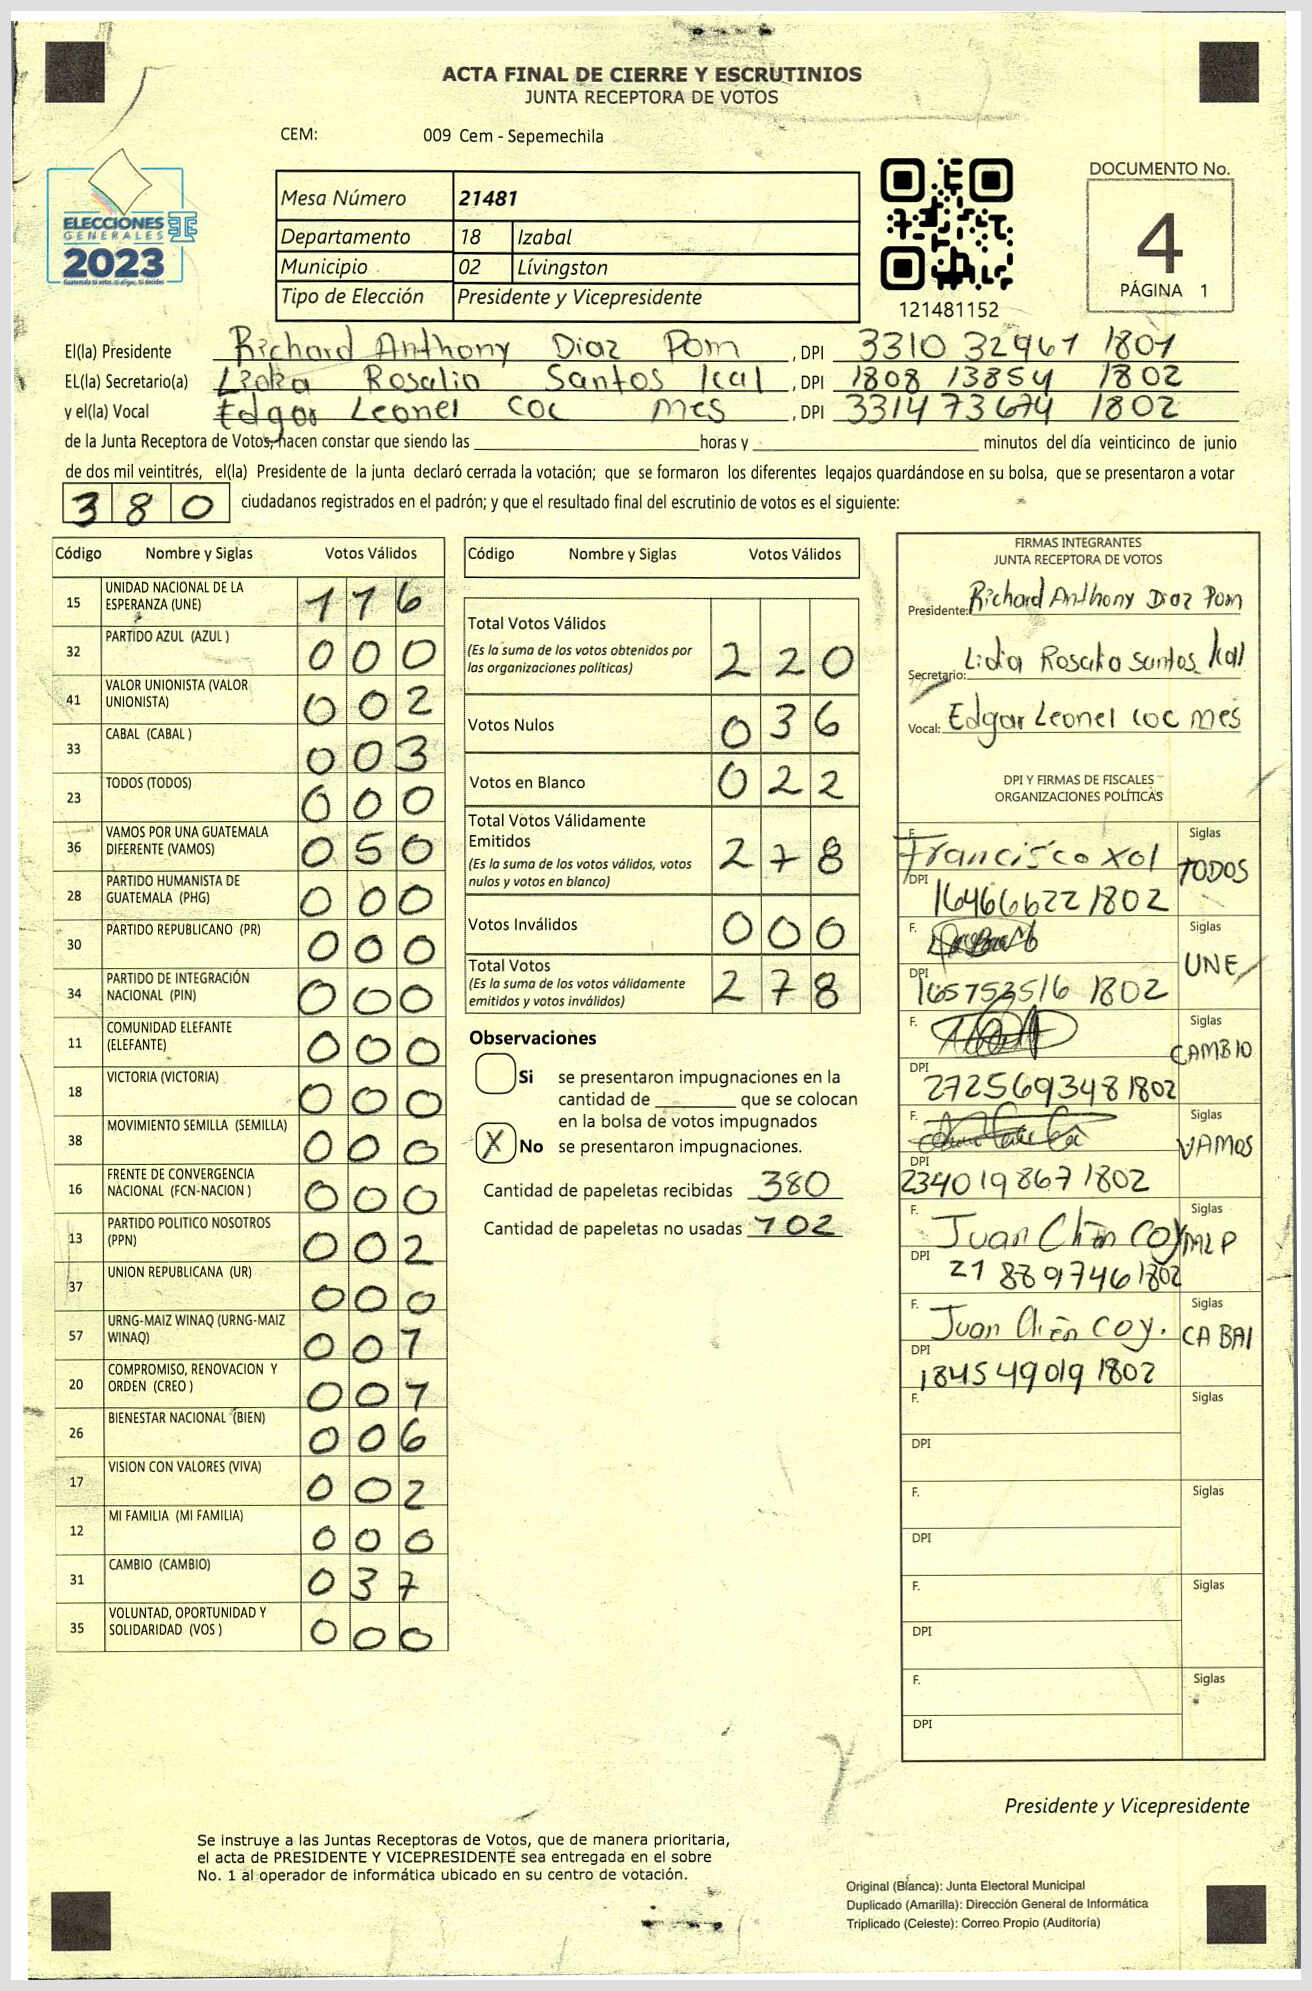 ACTA FINAL DE CIERRE Y ESCRUTINIOS
JUNTA RECEPTORA DE VOTOS
CEM: 009 Cem - Sepemechila
ELECCIONES
GENERALES
2023
Mesa Número 21481
Departamento 18 Izabal
Municipio 02 Lívingston
Tipo de Elección Presidente y Vicepresidente
121481152
DOCUMENTO No.
4
PÁGINA 1
El(la) Presidente Richard Anthony Diaz Pom , DPI 3310 32961 1801
EL(la) Secretario(a) Lidia Rosalio Santos Ical , DPI 1808 13854 1802
y el(la) Vocal Edgar Leonel coc mes , DPI 3314 73674 1802
de la Junta Receptora de Votos, hacen constar que siendo las horas y minutos del día veinticinco de junio
de dos mil veintitrés, el(la) Presidente de la junta declaró cerrada la votación; que se formaron los diferentes legajos quardándose en su bolsa, que se presentaron a votar
380 ciudadanos registrados en el padrón; y que el resultado final del escrutinio de votos es el siguiente:
Código Nombre y Siglas Votos Válidos
15 UNIDAD NACIONAL DE LA
ESPERANZA (UNE) 116
32 PARTIDO AZUL (AZUL ) 000
41 VALOR UNIONISTA (VALOR
UNIONISTA) 002
33 CABAL (CABAL ) 003
23 TODOS (TODOS) 000
36 VAMOS POR UNA GUATEMALA
DIFERENTE (VAMOS) 050
28 PARTIDO HUMANISTA DE
GUATEMALA (PHG) 000
30 PARTIDO REPUBLICANO (PR) 000
34 PARTIDO DE INTEGRACIÓN
NACIONAL (PIN) 000
11 COMUNIDAD ELEFANTE
(ELEFANTE) 000
18 VICTORIA (VICTORIA) 000
38 MOVIMIENTO SEMILLA (SEMILLA) 000
16 FRENTE DE CONVERGENCIA
NACIONAL (FCN-NACION ) 000
13 PARTIDO POLITICO NOSOTROS
(PPN) 002
37 UNION REPUBLICANA (UR) 000
57 URNG-MAIZ WINAQ (URNG-MAIZ
WINAQ) 001
20 COMPROMISO, RENOVACION Y
ORDEN (CREO ) 001
26 BIENESTAR NACIONAL (BIEN) 006
17 VISION CON VALORES (VIVA) 002
12 MI FAMILIA (MI FAMILIA) 000
31 CAMBIO (CAMBIO) 037
35 VOLUNTAD, OPORTUNIDAD Y
SOLIDARIDAD (VOS ) 000
Código Nombre y Siglas Votos Válidos
Total Votos Válidos
(Es la suma de los votos obtenidos por
las organizaciones políticas) 220
Votos Nulos 036
Votos en Blanco 022
Total Votos Válidamente
Emitidos
(Es la suma de los votos válidos, votos
nulos y votos en blanco) 278
Votos Inválidos 000
Total Votos
(Es la suma de los votos válidamente
emitidos y votos inválidos) 278
Observaciones
Si se presentaron impugnaciones en la
cantidad de que se colocan
en la bolsa de votos impugnados
X No se presentaron impugnaciones.
Cantidad de papeletas recibidas 380
Cantidad de papeletas no usadas 102
FIRMAS INTEGRANTES
JUNTA RECEPTORA DE VOTOS
Presidente: Richard Anthony Diaz Pom
Secretario: Lidia Rosalia Santos Ical
Vocal: Edgar Leonel coc mes
DPI Y FIRMAS DE FISCALES
ORGANIZACIONES POLÍTICAS
F. Francisco xol Siglas
TODOS
DPI 164666622 1802
F. Siglas
UNE
DPI 165753516 1802
F. Siglas
CAMBIO
DPI 272569348 1802
F. Siglas
VAMOS
DPI 234019867 1802
F. Juan Chen Coy Siglas
MLP
DPI 21 8897461802
F. Juan Chen coy. Siglas
CABAl
DPI 184549019 1802
F. Siglas
DPI
F. Siglas
DPI
F. Siglas
DPI
F. Siglas
DPI
Presidente y Vicepresidente
Se instruye a las Juntas Receptoras de Votos, que de manera prioritaria,
el acta de PRESIDENTE Y VICEPRESIDENTE sea entregada en el sobre
No. 1 al operador de informática ubicado en su centro de votación.
Original (Blanca): Junta Electoral Municipal
Duplicado (Amarilla): Dirección General de Informática
Triplicado (Celeste): Correo Propio (Auditoría)